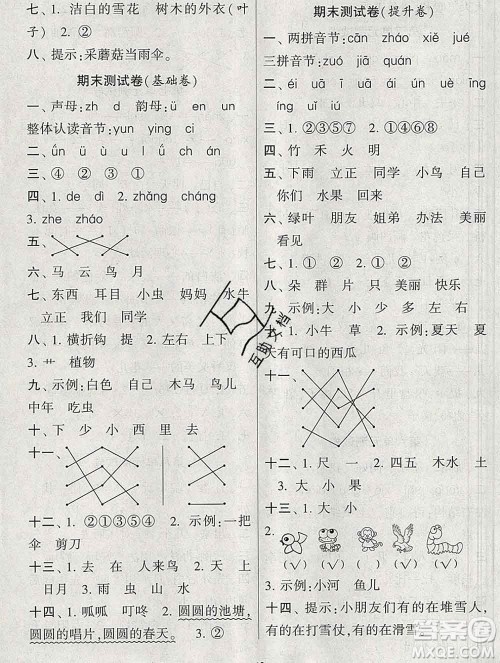 七、1. 洁白的雪花 树木的外衣(叶
子) 2. ②
八、提示:采蘑菇当雨伞。
期末测试卷(基础卷)
一、声母:zh d 韵母:ü en un
整体认读音节:yun ying ci
三、④ ② ① ③
四、1. cháo 2. zhǎng cháng
3. zhe zháo
五、
六、马 云 鸟 月
七、东西 耳目 小虫 妈妈 水牛
立正 我们 同学
八、1. 横折钩 提 2. 左右 上下
3. 艹 植物
九、示例:白色 自己 木马 鸟儿
中年 吃虫
十、下 少 小 西 里 去
十一、
十二、1. ②①③⑤④ 2. 示例:一把
伞 剪刀
十三、1. 去 在 2. 入 天 上
日月 3. 雨 出 山 水
十四、1. 呱呱 叮咚 2. 圆圆的池塘,
圆圆的唱片,圆圆的春天。 3. ②
期末测试卷(提升卷)
一、两拼音节:cǎn zháo xiě jué
三拼音节:zuó jiā guā juān
二、ēi íu ā uā ā úu ùe īng
íng uǐ iú
三、1. ①③④ 2. ①②③⑤ 3. ②④
四、竹 禾 火 明
五、下雨 立正 同学 小鸟 自己
你们 水果 回来
六、绿叶 朋友 姐弟 办法 美丽
看见
七、1. ① 2. ② 3. ① 4. ①②
八、朵 群 片 只 美丽 快乐
九、示例:大 小 少 多 左 右
十、1. 小牛 草 2. 示例:夏天 夏
天有可口的西瓜
十一、
十二、1. 尺 一 2. 四五 木水 土
3. 大 小 果
十三、1. 大 小
2.
( ) (√) (√) ( ) ( )
3. 示例:小河 鱼儿
十四、提示:小朋友们有的在堆雪人,
有的在打雪仗,有的在滑雪
互助文档
作业帮
MXQE.COM